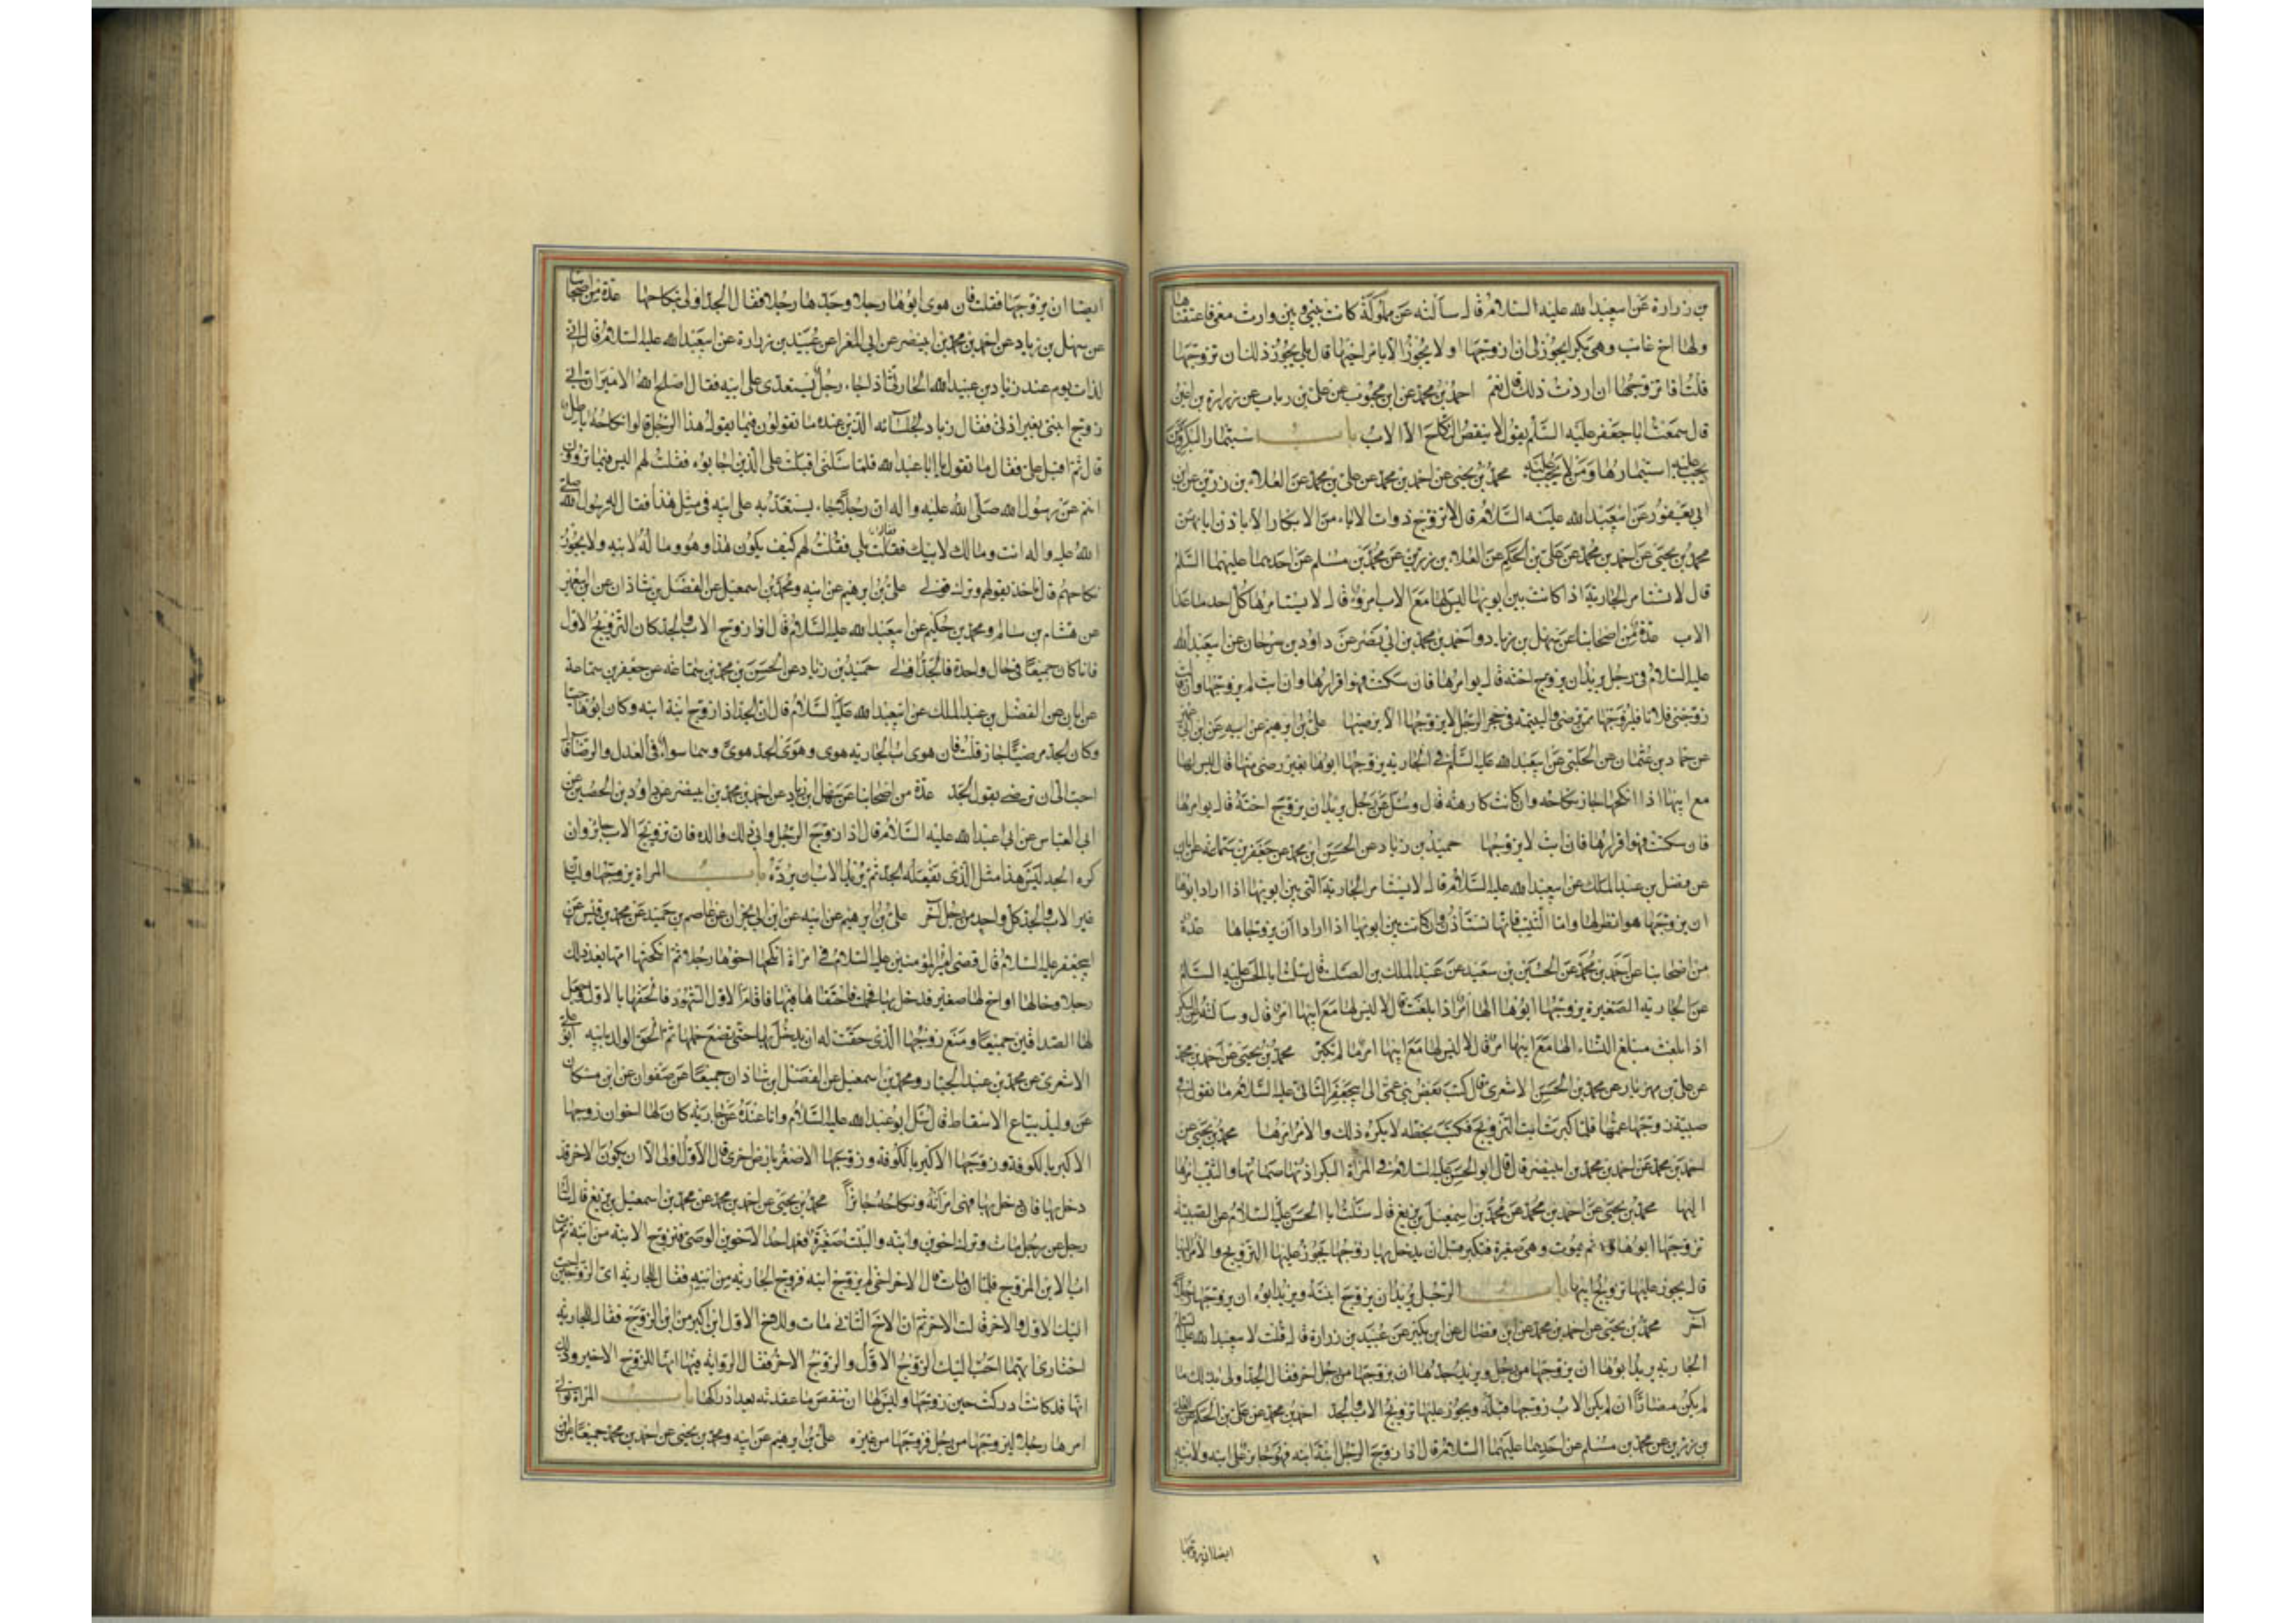 بن زرارة عن ابيعبد الله عليه السلام قال سالته عن مملوكة كانت بيني وبين وارث معي فاعتقناها
ولها اخ غائب وهي بكر ايجوز لي ان ازوجها او لا يجوز الا بامر اخيها قال بلى يجوز ذلك ان تزوجها
قلت افاتزوجها ان اردت ذلك قال نعم احمد بن محمد عن ابن محبوب عن علي بن رياب عن زرارة بن اعين
قال سمعت ابا جعفر عليه السلم يقول لا ينقض النكاح الا الاب باب استيمار البكر ومن
يجب عليه استيمارها ومن لا يجب عليه محمد بن يحيى عن احمد بن محمد عن علي بن محمد عن العلاء بن رزين عن ابن
ابي يعفور عن ابيعبد الله عليه السلام قال لا تزوج ذوات الاباء من الابكار الا باذن ابائهن
محمد بن يحيى عن احمد بن محمد عن علي بن الحكم عن العلاء بن رزين عن محمد بن مسلم عن احدهما عليهما السلم
قال لا تستامر الجارية اذا كانت بين ابويها ليس لها مع الاب امر وقال لا يستامرها كل احد ما عدا
الاب عدة من اصحابنا عن سهل بن زياد واحمد بن محمد بن ابي نصر عن داود بن سرحان عن ابيعبد الله
عليه السلام في رجل يريد ان يزوج اخته قال يوامرها فان سكتت فهو اقرارها وان ابت لم يزوجها وان قالت
زوجني فلانا فليزوجها ممن ترضى واليتيمة في حجر الرجل لا يزوجها الا برضيها علي بن ابرهيم عن ابيه عن ابن ابي عمير
عن حماد بن عثمان عن الحلبي عن ابيعبد الله عليه السلم في الجارية يزوجها ابوها بغير رضى منها قال ليس لها
مع ابيها اذا انكحها جاز نكاحه وان كانت كارهة قال وسئل عن رجل يريد ان يزوج اخته قال يوامرها
فان سكتت فهو اقرارها فان ابت لا يزوجها حميد بن زياد عن الحسن ابن محمد عن جعفر بن سماعه عن ابان
عن فضل بن عبد الملك عن ابيعبد الله عليه السلام قال لا يستامر الجارية التي بين ابويها اذا اراد ابوها
ان يزوجها هو انظر لها واما الثيب فانها تستاذن وان كانت بين ابويها اذا ارادا ان يزوجاها عدة
من اصحابنا عن احمد بن محمد عن الحسين بن سعيد عن عبد الملك بن الصلت قال سئلت ابا الحسن عليه السلم
عن الجارية الصغيرة يزوجها ابوها الها امر اذا بلغت قال لا ليس لها مع ابيها امر قال وسالته عن البكر
اذا بلغت مبلغ النساء الها مع ابيها امر قال لا ليس لها مع ابيها امر ما لم تكبر محمد بن يحيى عن احمد بن محمد
عن علي بن مهزيار عن محمد بن الحسن الاشعري قال كتب بعض بني عمي الى ابيجعفر الثاني عليه السلام ما تقول في
صبية زوجها عمها فلما كبرت ابت التزويج فكتب بخطه لا يكره ذلك والامر امرها محمد بن يحيى عن
احمد بن محمد عن احمد بن محمد بن ابينصر قال قال ابو الحسن عليه السلام في المراة البكر اذنها صماتها والثيب امرها
اليها محمد بن يحيى عن احمد بن محمد عن محمد بن اسمعيل بن بزيع قال سئلت ابا الحسن عليه السلام عن الصبية
تزوجها ابوها ثم يموت وهي صغيرة فتكبر قبل ان يدخل بها زوجها يجوز عليها التزويج والامر اليها
قال يجوز عليها تزويج ابيها باب الرجل يريد ان يزوج ابنته ويريد ابوه ان يزوجها رجلا
اخر محمد بن يحيى عن احمد بن محمد عن ابن فضال عن ابن بكير عن عبيد بن زرارة قال قلت لابيعبد الله عليه السلام
الجارية يريد ابوها ان يزوجها من رجل ويريد جدها ان يزوجها من رجل اخر فقال الجد اولى بذلك ما
لم يكن مضارا ان لم يكن الاب زوجها قبله ويجوز عليها تزويج الاب والجد احمد بن محمد عن علي بن الحكم عن العلا
بن رزين عن محمد بن مسلم عن احدهما عليهما السلام قال اذا زوج الرجل ابنة ابنه فهو جايز على ابنه ولابنه
ايضا ان يزوجها
ايضا ان يزوجها فقلت فان هوى ابوها رجلا وجدها رجلا فقال الجد اولى بنكاحها عدة من اصحابنا
عن سهل بن زياد عن احمد بن محمد بن ابينصر عن ابي المغرا عن عبيد بن زرارة عن ابيعبد الله عليه السلام قال اني
لذات يوم عند زياد بن عبيد الله الحارثي اذ جاء رجل يستعدى على ابيه فقال اصلح الله الامير ان ابي
زوج ابنتي بغير اذني فقال زياد لجلسائه الذين عنده ما تقولون فيما يقول هذا الرجل قالوا نكاحه باطل
قال ثم اقبل علي فقال ما تقول يا ابا عبد الله فلما سئلني اقبلت على الذين اجابوه فقلت لهم اليس فيما تروون
انتم عن رسول الله صلى الله عليه واله ان رجلا جاء يستعديه على ابيه في مثل هذا فقال له رسول الله صلى
الله عليه واله انت ومالك لابيك فقالوا بلى فقلت لهم كيف يكون هذا وهو وماله لابيه ولا يجوز
نكاحهم قال فاخذ بقولهم وترك قولي علي بن ابرهيم عن ابيه ومحمد بن اسمعيل عن الفضل بن شاذان عن ابن ابي عمير
عن هشام بن سالم ومحمد بن حكيم عن ابيعبد الله عليه السلام قال اذا زوج الاب والجد كان التزويج للاول
فان كان جميعا في حال واحدة فالجد اولى حميد بن زياد عن الحسن بن محمد بن سماعه عن جعفر بن سماعة
عن ابان عن الفضل بن عبد الملك عن ابيعبد الله عليه السلام قال ان الجد اذا زوج ابنة ابنه وكان ابوها حيا
وكان الجد مرضيا جاز قلت فان هوى اب الجارية هوى وهوى الجد هوى وهما سواء في العدل والرضا قال
احب الى ان ترضى بقول الجد عدة من اصحابنا عن سهل بن زياد عن احمد بن محمد بن ابينصر عن داود بن الحصين عن
ابي العباس عن ابي عبد الله عليه السلام قال اذا زوج الرجل وابى ذلك والده فان تزويج الاب جايز وان
كره الجد ليس هذا مثل الذي يفعله الجد ثم يريد الاب ان يرده باب المراة يزوجها وليان
غير الاب والجد كل واحد من رجل اخر علي بن ابرهيم عن ابيه عن ابن ابي نجران عن عاصم بن حميد عن محمد بن قيس عن
ابيجعفر عليه السلام قال قضى امير المؤمنين عليه السلام في امراة انكحها اخوها رجلا ثم انكحتها امها بعد ذلك
رجلا وخالها او اخ لها صغير فدخل بها فحبلت فاحتقا فيها فاقام الاول الشهود فالحقها بالاول وجعل
لها الصداقين جميعا ومنع زوجها الذي حقت له ان يدخل بها حتى تضع حملها ثم الحق الولد بابيه ابو علي
الاشعري عن محمد بن عبد الجبار ومحمد بن اسمعيل عن الفضل ابن شاذان جميعا عن صفوان عن ابن مسكان
عن وليد بياع الاسقاط قال سئل ابو عبد الله عليه السلام وانا عنده عن جارية كان لها اخوان زوجها
الاكبر بالكوفة وزوجها الاصغر بارض اخرى قال الاول اولى الا ان يكون الاخر قد
دخل بها فان دخل بها فهي امراته ونكاحه جائز محمد بن يحيى عن احمد بن محمد عن محمد بن اسمعيل بن بزيع قال سئله
رجل عن رجل مات وترك اخوين وابنة والبنت صغيرة فعمد احد الاخوين الوصي فتزوج الابنة من ابنه ثم مات
اب الابن المزوج فلما ان مات قال الاخر اخي لم يزوج ابنه فزوج الجارية من ابنه فقال للجارية اي الزوجين احب
اليك الاول والاخر قالت الاخر ثم ان الاخ الثاني مات وللاخ الاول ابن اكبر من ابن المزوج فقال للجارية
اختاري ايهما احب اليك الزوج الاول والزوج الاخر فقال الرواية فيها انها للزوج الاخير وذلك
انها قد كانت ادركت حين زوجها وليس لها ان تنقض ما عقدته بعد ادراكها باب المراة تولى
امرها رجلا ليزوجها من رجل فزوجها من غيره علي بن ابرهيم عن ابيه ومحمد بن يحيى عن احمد بن محمد جميعا عن ابن